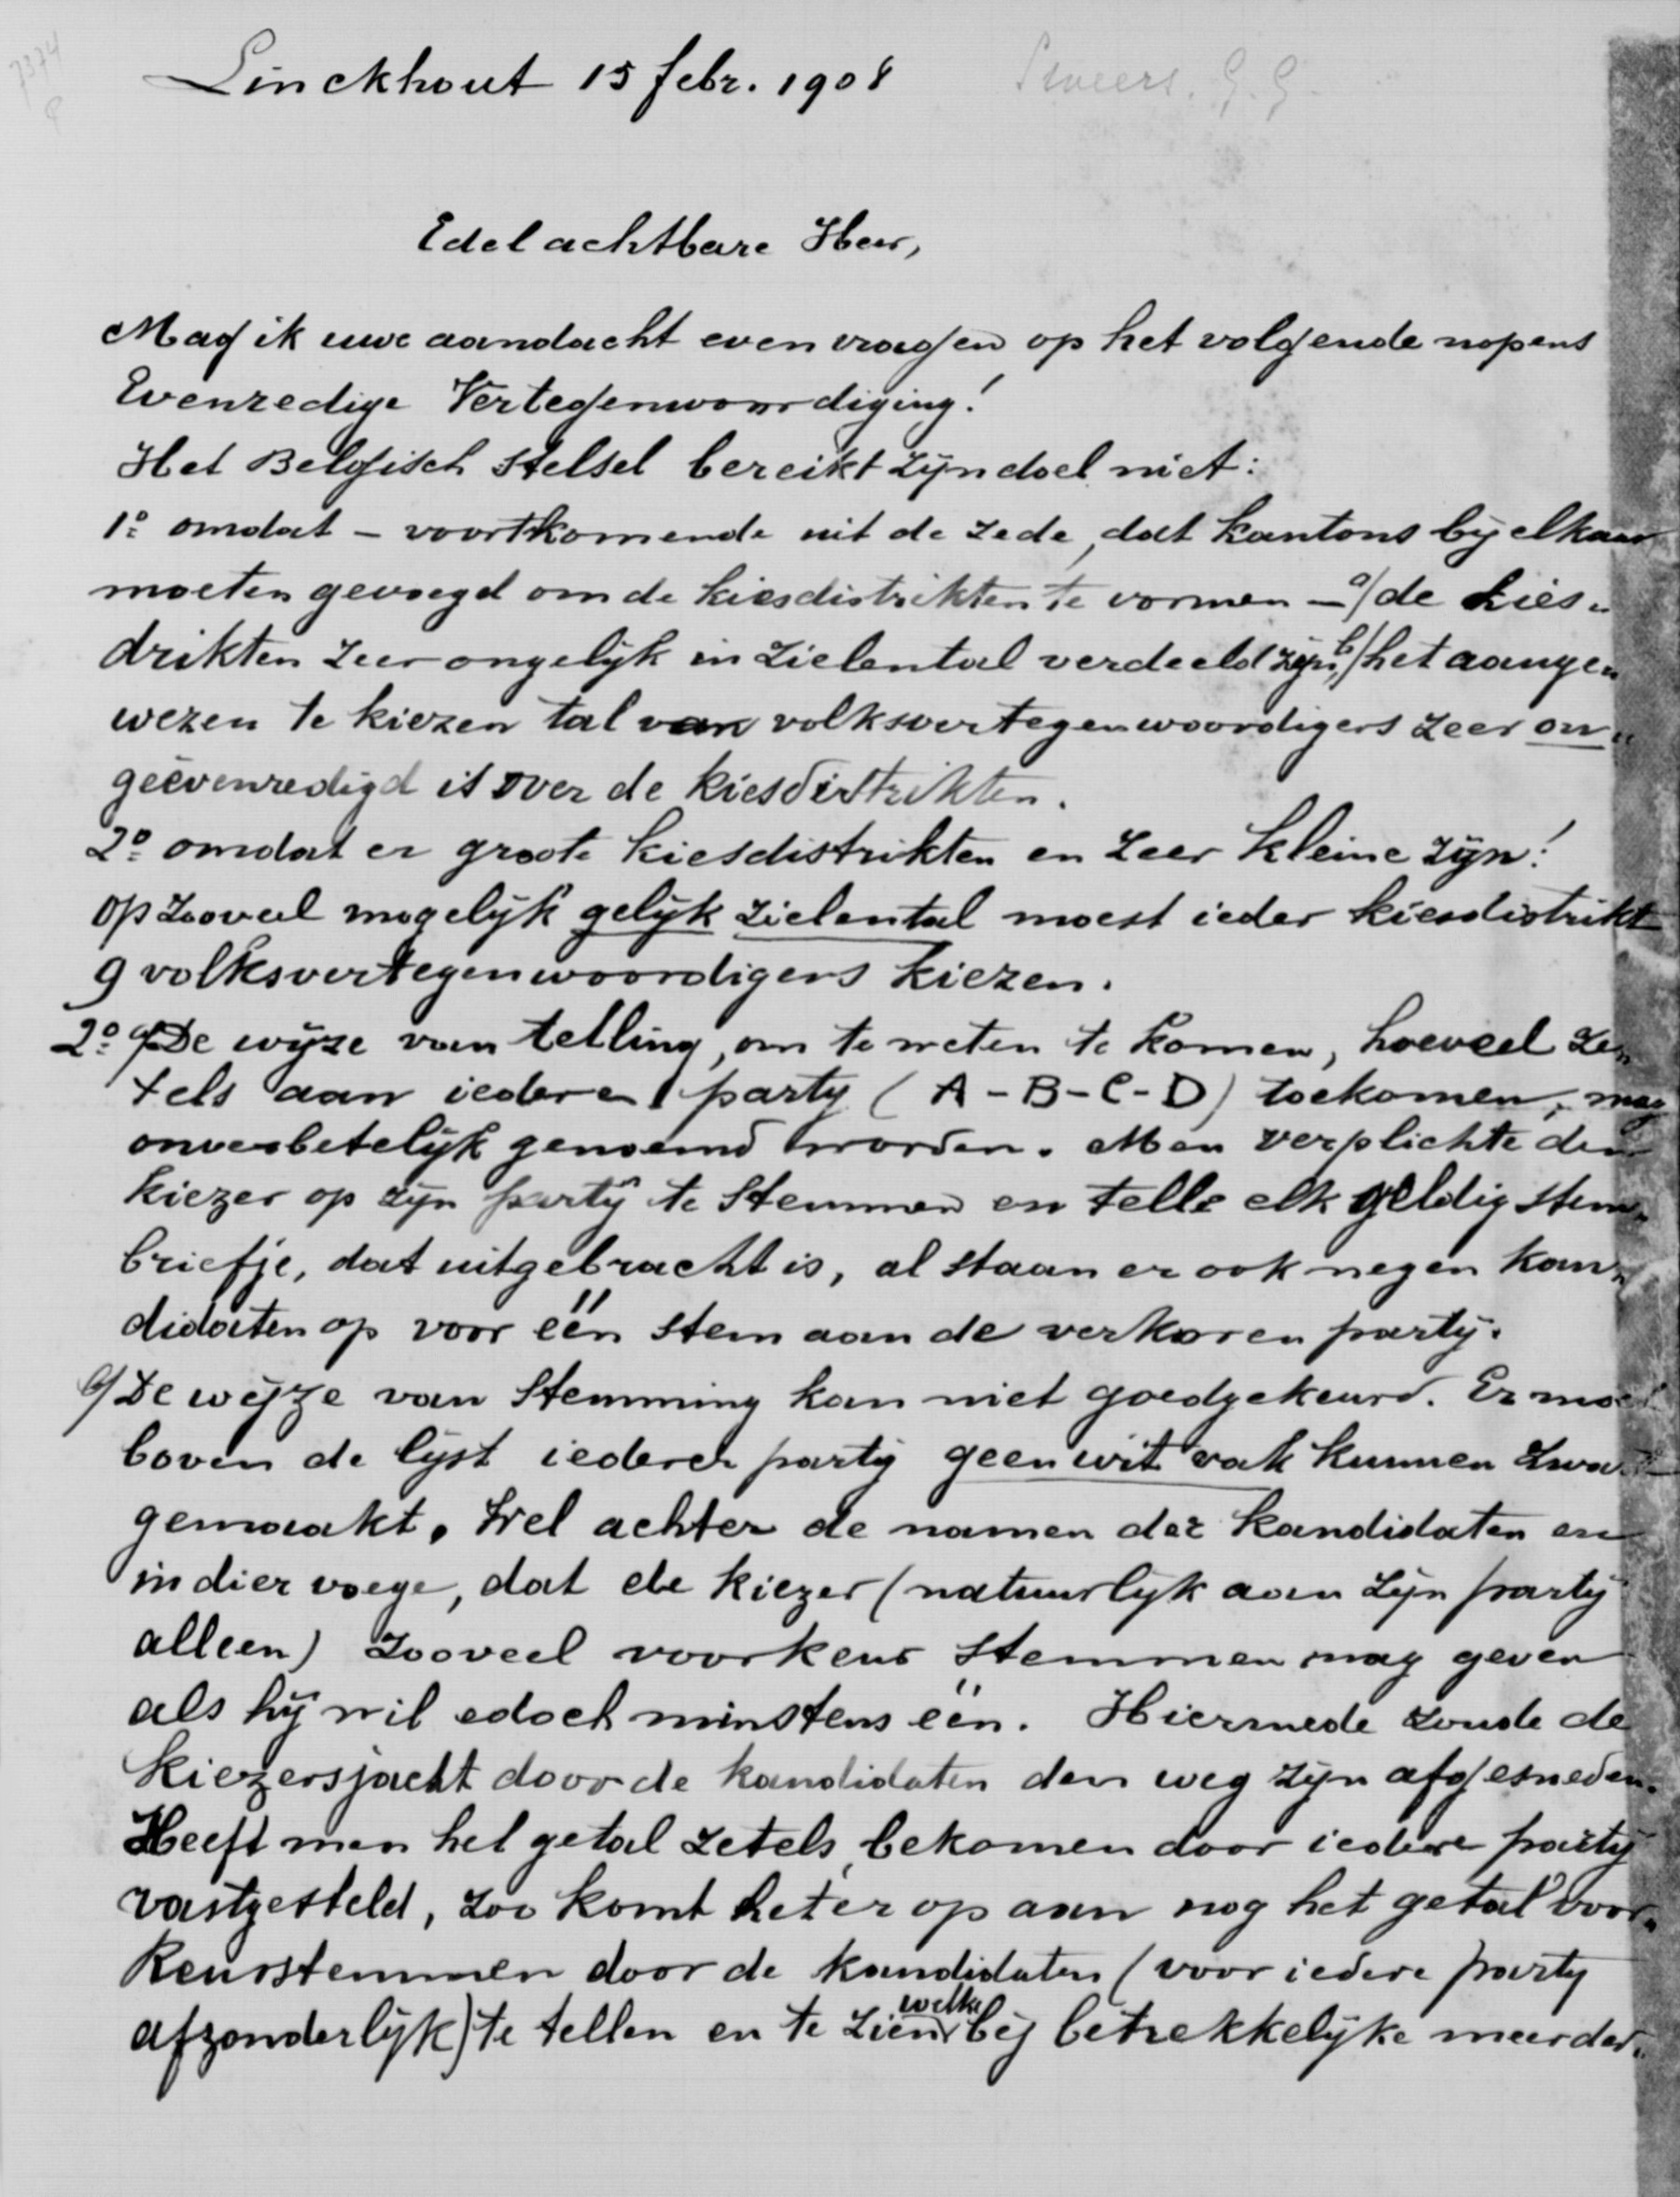 Linckhout 15 febr. 1908
7374
Sweers. G. G.
Edelachtbare Heer,
Mag ik uwe aandacht even vragen op het volgende nopens
Evenredige Vertegenwoordiging!
Het Belgisch Stelsel bereikt zijn doel niet:
1º omdat – voortkomende uit de rede, dat kantons bij elkaar
moeten gevoegd om de kiesdistrikten te vormen – a/ de kies„
drikten zeer ongelijk in zielental verdeeld zijn, b/ het aange„
wezen te kiezen tal van volksvertegenwoordigers zeer on„
geëvenredigd is over de kiesdistrikten.
2º omdat er groote kiesdistrikten en zeer kleine zijn!
Op zooveel mogelijk gelijk zielental moest ieder kiesdistrikt
9 volksvertegenwoordigers kiezen.
2º a/ De wijze van telling, om te weten te komen, hoeveel ze„
tels aan iedere party (A-B-C-D) toekomen, mag
onverbetelijk genoemd worden. Men verplichte den
kiezer op zijn partij te stemmen en telle elk geldig stem„
briefje, dat uitgebracht is, al staan er ook negen kan„
didaten op voor één stem aan de verkoren partij.
b/ De wijze van Stemming kan niet goedgekeurd. Er moet
boven de lijst iederer partij geen wit vak kunnen zwart
gemaakt. Wel achter de namen der kandidaten en
in dier voege, dat de kiezer (natuurlijk aan zijn partij
alleen) zooveel voorkeur stemmen mag geven
als hij wil edoch minstens één. Hiermede zoude de
kiezersjacht door de kandidaten den weg zijn afgesneden.
Heeft men het getal zetels, bekomen door iedere partij
vastgesteld, zoo komt het er op aan nog het getal voor„
keurstemmen door de kandidaten (voor iedere party
afzonderlijk) te tellen en te zien welke bij betrekkelijke meerder„